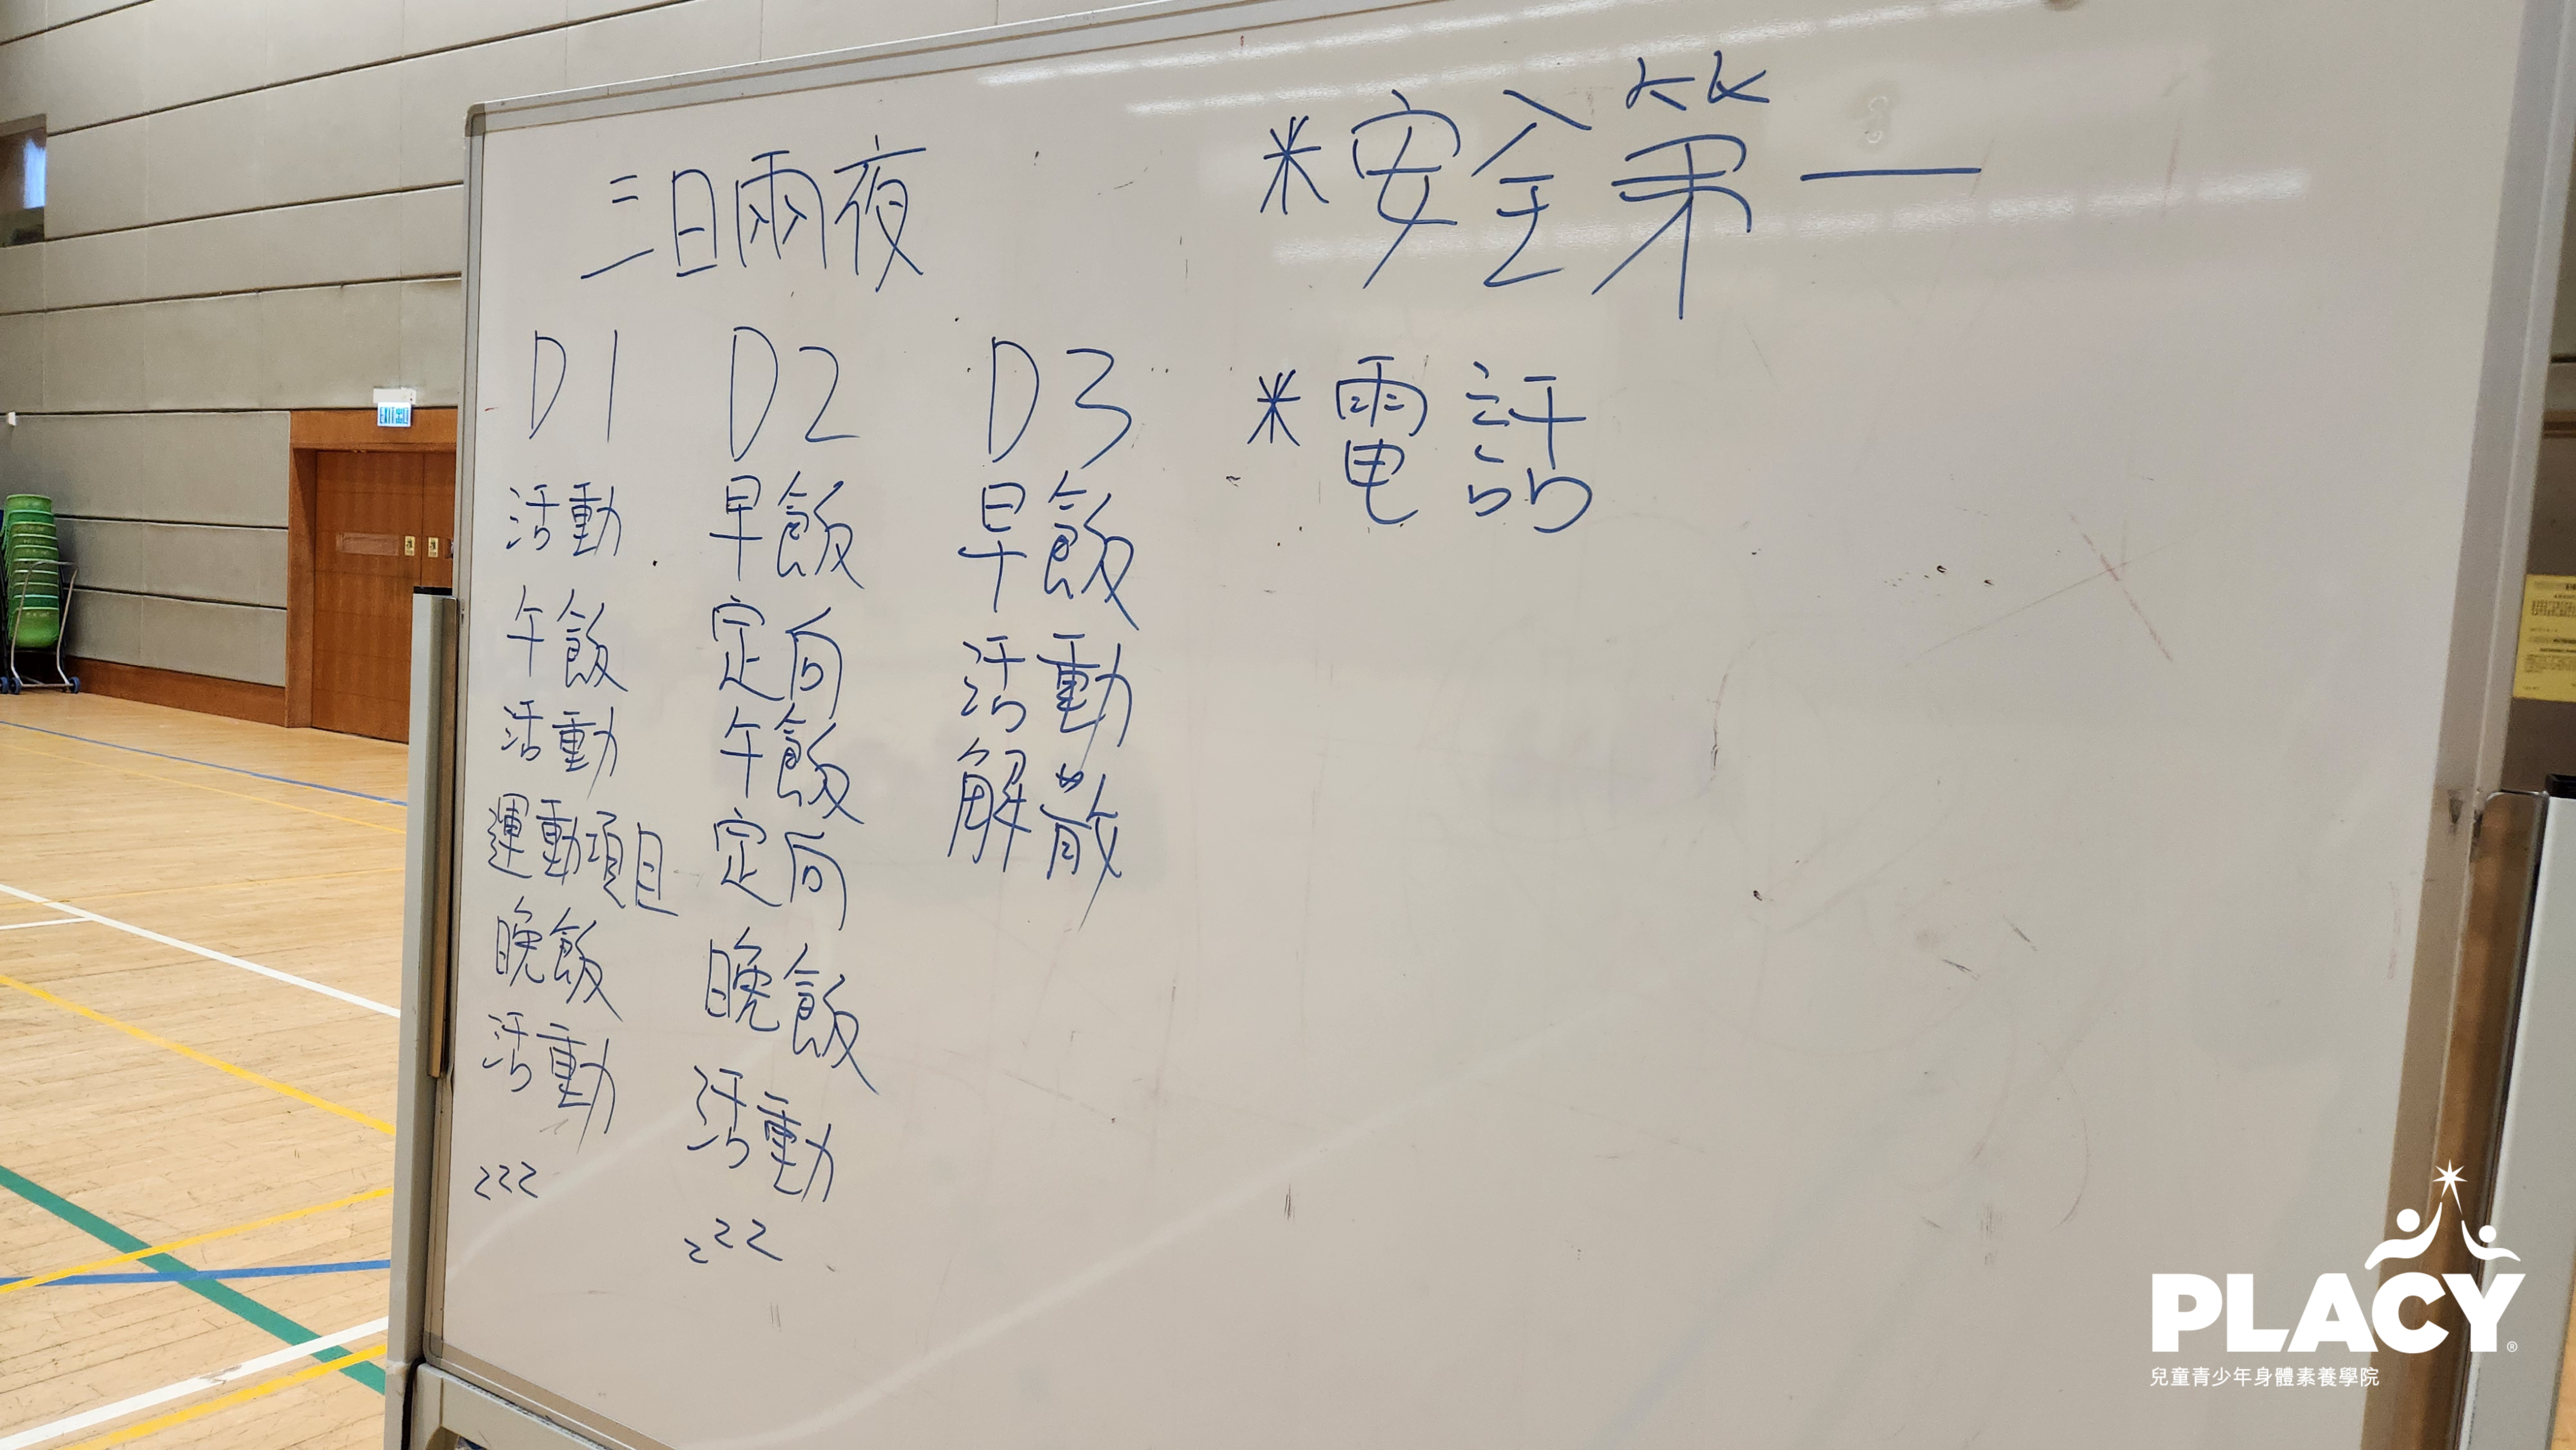 三日兩夜
D1
活動
午飯
活動
運動項目
晚飯
活動
zzz
D2
早飯
定向
午飯
定向
晚飯
活動
zzz
D3
早飯
活動
解散
*安全第一
*電話
PLACY®
兒童青少年身體素養學院